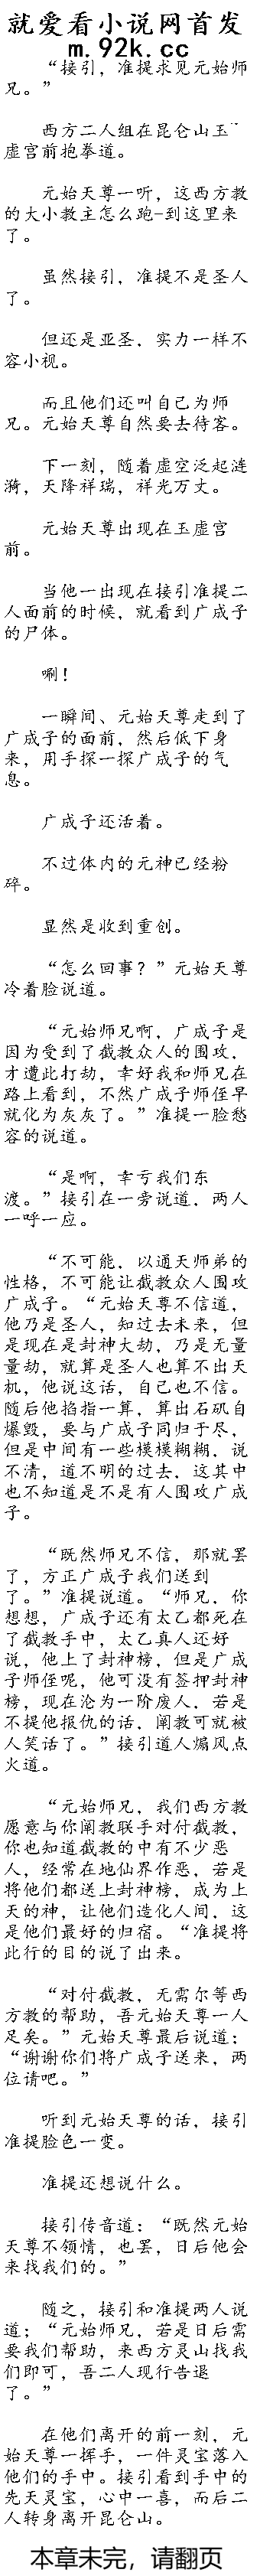 就爱看小说网首发
m.92k.cc
“接引，准提求见元始师
兄。”
西方二人组在昆仑山玉
虚宫前抱拳道。
元始天尊一听，这西方教
的大小教主怎么跑-到这里来
了。
虽然接引，准提不是圣人
了。
但还是亚圣，实力一样不
容小视。
而且他们还叫自己为师
兄。元始天尊自然要去待客。
下一刻，随着虚空泛起涟
漪，天降祥瑞，祥光万丈。
元始天尊出现在玉虚宫
前。
当他一出现在接引准提二
人面前的时候，就看到广成子
的尸体。
唰！
一瞬间、元始天尊走到了
广成子的面前，然后低下身
来，用手探一探广成子的气
息。
广成子还活着。
不过体内的元神已经粉
碎。
显然是收到重创。
“怎么回事？”元始天尊
冷着脸说道。
“元始师兄啊，广成子是
因为受到了截教众人的围攻，
才遭此打劫，幸好我和师兄在
路上看到，不然广成子师侄早
就化为灰灰了。”准提一脸愁
容的说道。
“是啊，幸亏我们东
渡。”接引在一旁说道，两人
一呼一应。
“不可能，以通天师弟的
性格，不可能让截教众人围攻
广成子。“元始天尊不信道，
他乃是圣人，知过去未来，但
是现在是封神大劫，乃是无量
量劫，就算是圣人也算不出天
机，他说这话，自己也不信。
随后他掐指一算，算出石矶自
爆毁，要与广成子同归于尽，
但是中间有一些模模糊糊，说
不清，道不明的过去，这其中
也不知道是不是有人围攻广成
子。
“既然师兄不信，那就罢
了，方正广成子我们送到
了。”准提说道。“师兄，你
想想，广成子还有太乙都死在
了截教手中，太乙真人还好
说，他上了封神榜，但是广成
子师侄呢，他可没有签押封神
榜，现在沦为一阶废人，若是
不提他报仇的话，阐教可就被
人笑话了。”接引道人煽风点
火道。
“元始师兄，我们西方教
愿意与你阐教联手对付截教，
你也知道截教的中有不少恶
人，经常在地仙界作恶，若是
将他们都送上封神榜，成为上
天的神，让他们造化人间，这
是他们最好的归宿。“准提将
此行的目的说了出来。
“对付截教，无需尔等西
方教的帮助，吾元始天尊一人
足矣。”元始天尊最后说道；
“谢谢你们将广成子送来，两
位请吧。”
听到元始天尊的话，接引
准提脸色一变。
准提还想说什么。
接引传音道：“既然元始
天尊不领情，也罢，日后他会
来找我们的。”
随之，接引和准提两人说
道；“元始师兄，若是日后需
要我们帮助，来西方灵山找我
们即可，吾二人现行告退
了。”
在他们离开的前一刻，元
始天尊一挥手，一件灵宝落入
他们的手中。接引看到手中的
先天灵宝，心中一喜，而后二
人转身离开昆仑山。
本章未完，请翻页